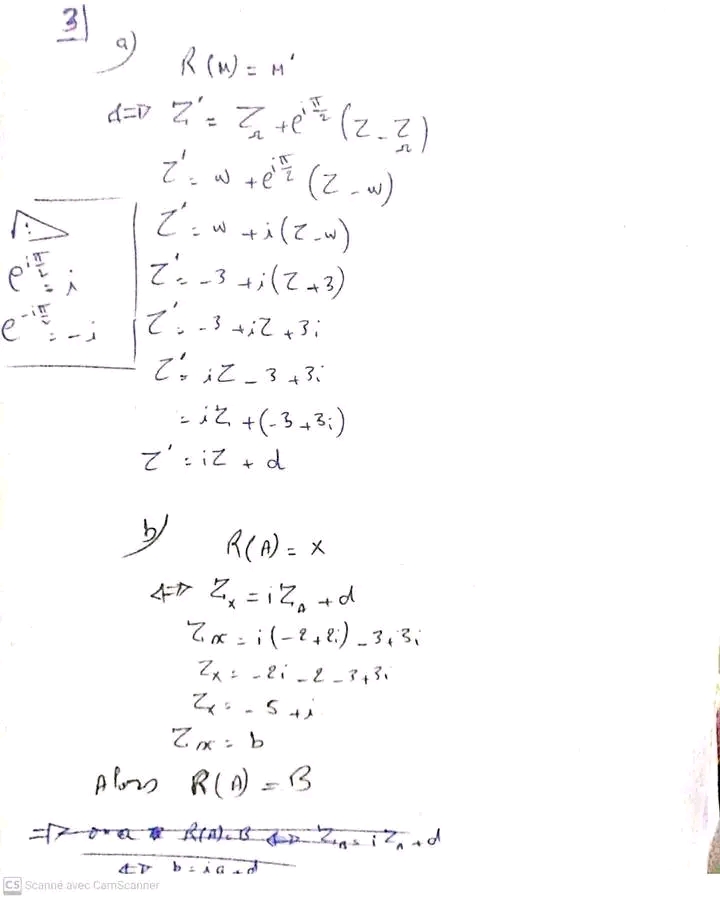 3|
a)
R(M) = M'
<=> Z' = Z_Ω + e^{iπ/2} (Z - Z_Ω)
Z' = w + e^{iπ/2} (Z - w)
Z' = w + i(Z - w)
Z' = -3 + i(Z + 3)
Z' = -3 + iZ + 3i
Z' = iZ - 3 + 3i
= iZ + (-3 + 3i)
Z' = iZ + d
e^{iπ/2} = i
e^{-iπ/2} = -i
b)
R(A) = X
<=> Z_x = iZ_A + d
Z_x = i(-2 + 2i) - 3 + 3i
Z_x = -2i - 2 - 3 + 3i
Z_x = -5 + i
Z_x = b
Alors R(A) = B
=> on a R(A) = B <=> Z_B = iZ_A + d
<=> b = ia + d
CS Scanné avec CamScanner